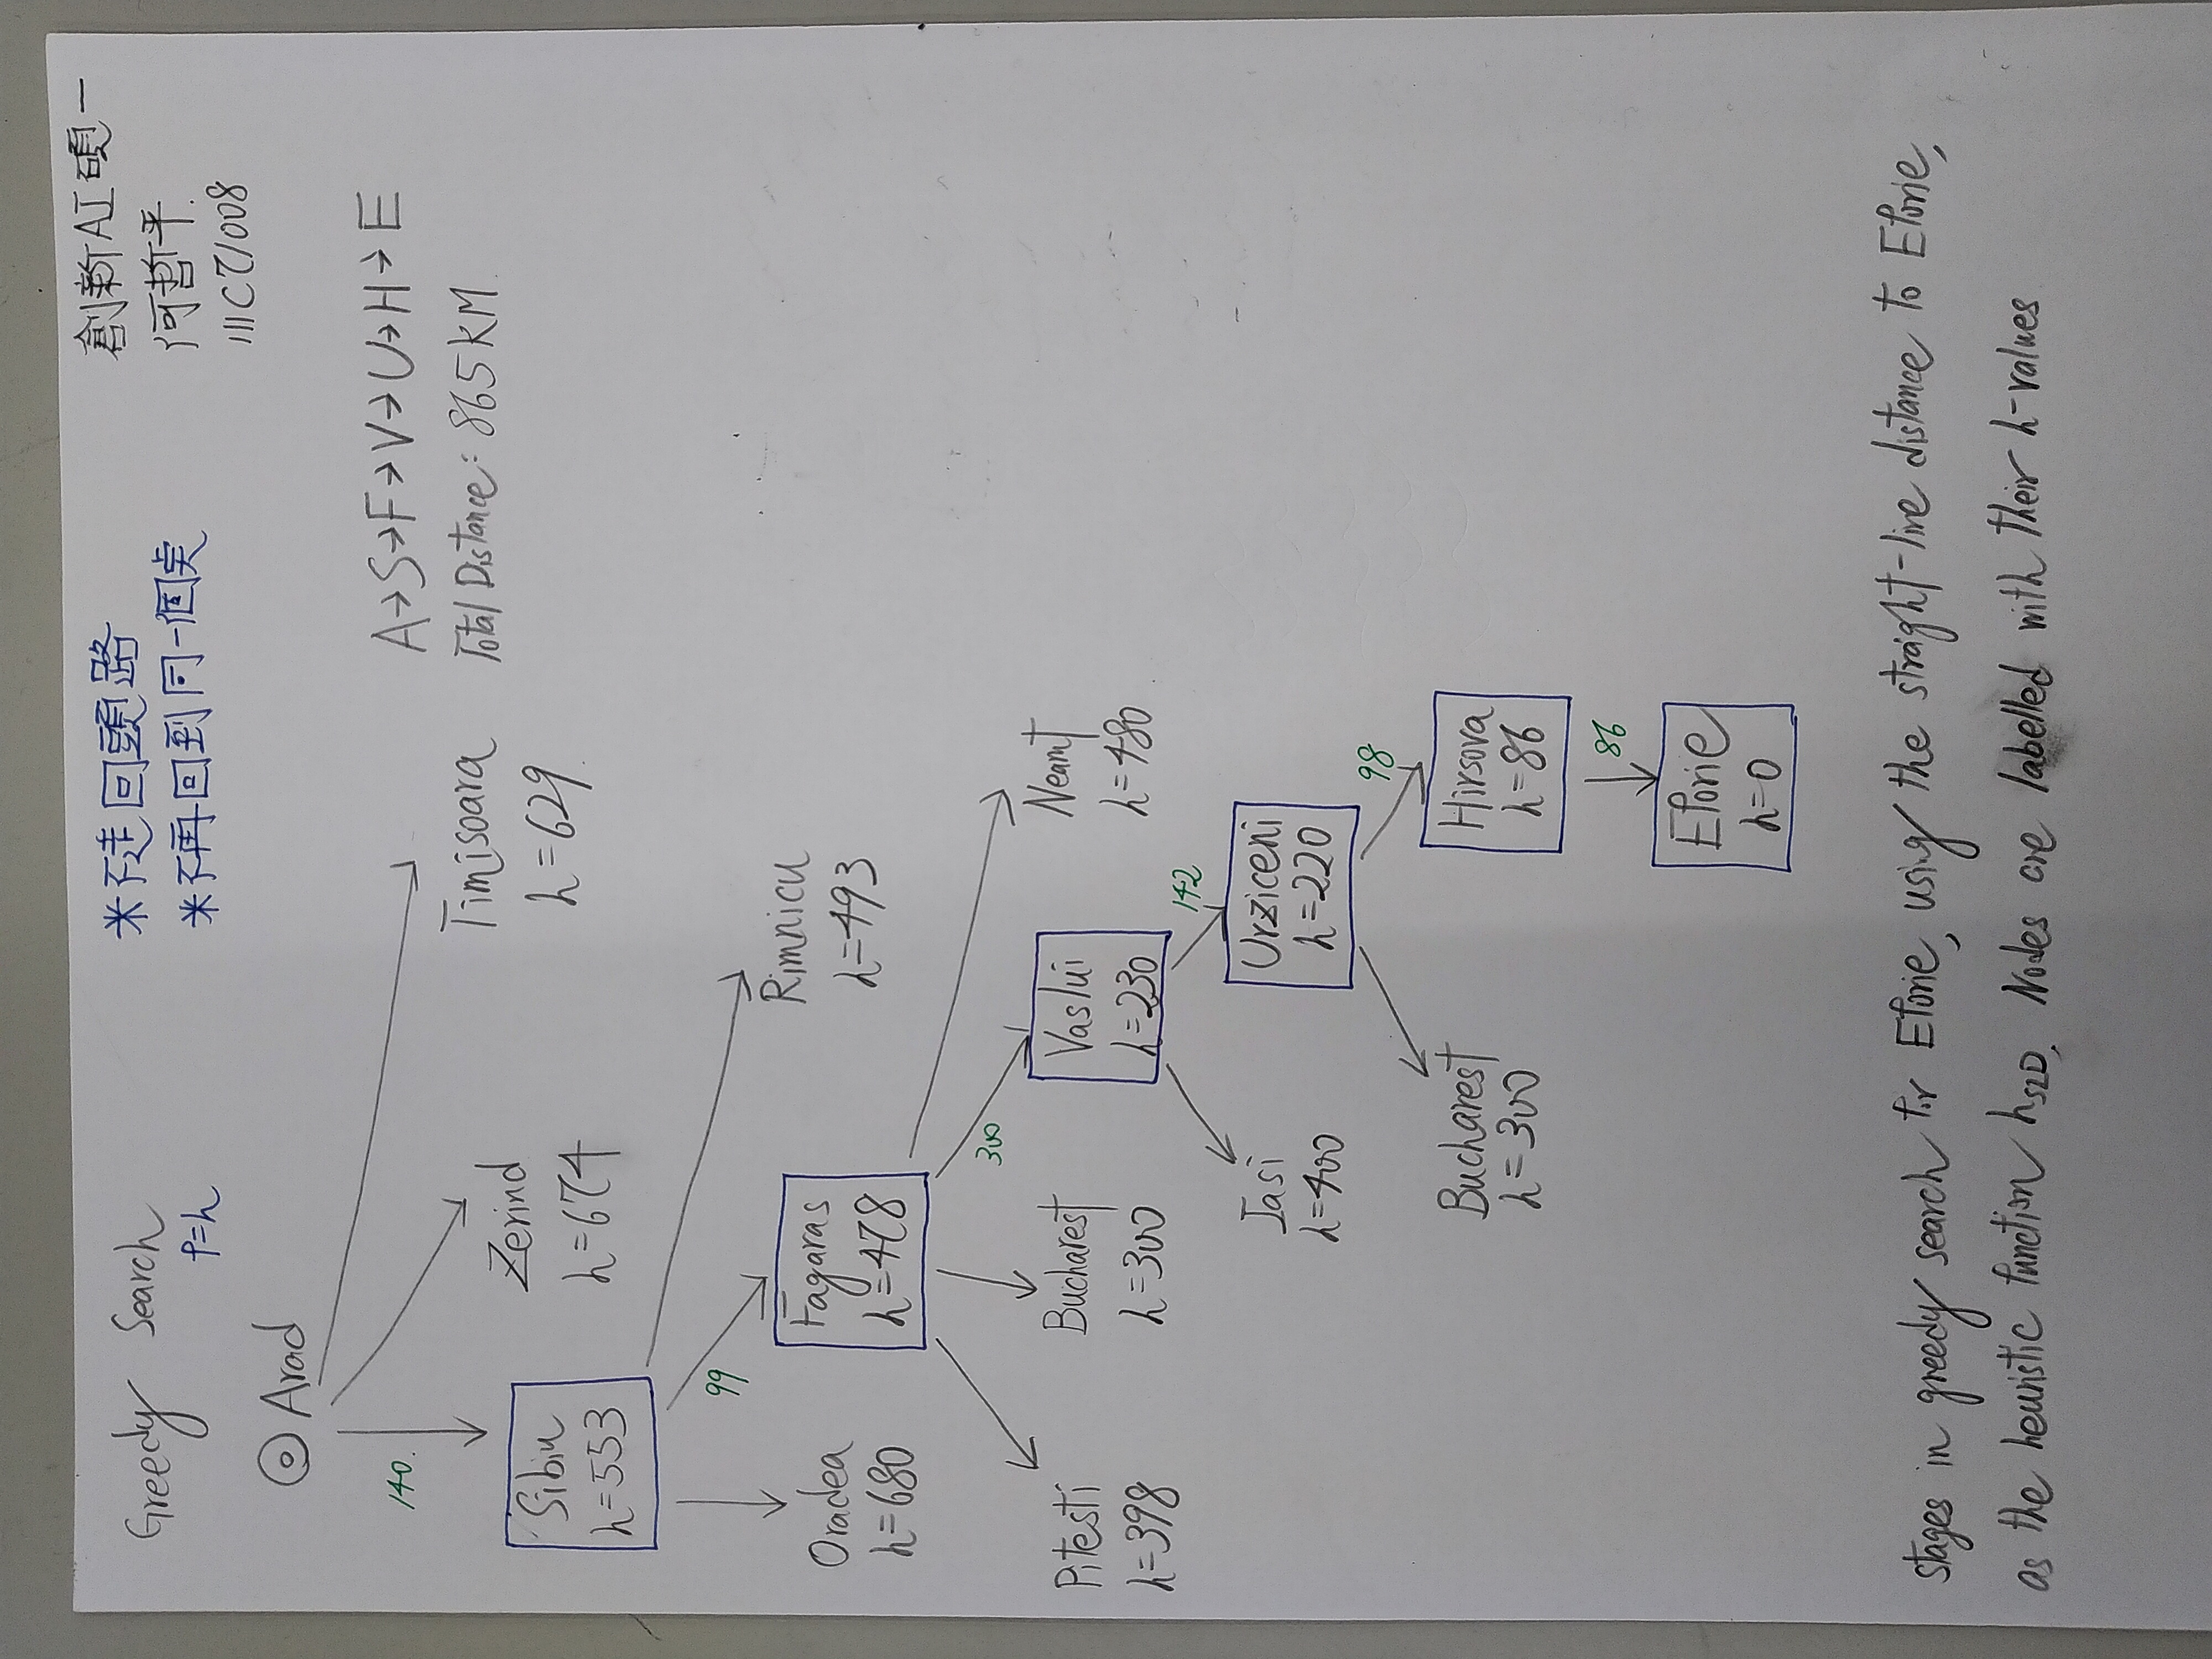 Greedy Search
f=h
*不走回頭路
*不再回到同一個點
創新AI碩一
何哲平
111C71008
Arad
140.
A→S→F→V→U→H→E
Total Distance: 865KM.
Timisoara
h=629
Zerind
h=674
Sibiu
h=553
99
Rimnicu
h=493
Oradea
h=680
Fagaras
h=478
300
Pitesti
h=398
Bucharest
h=300
Vaslui
h=230
Neamt
h=480
142
Iasi
h=400
Urziceni
h=220
98
Bucharest
h=300
Hirsova
h=86
86
Eforie
h=0
stages in greedy search for Eforie, using the straight-line distance to Eforie,
as the heuristic function hSLD. Nodes are labelled with their h-values